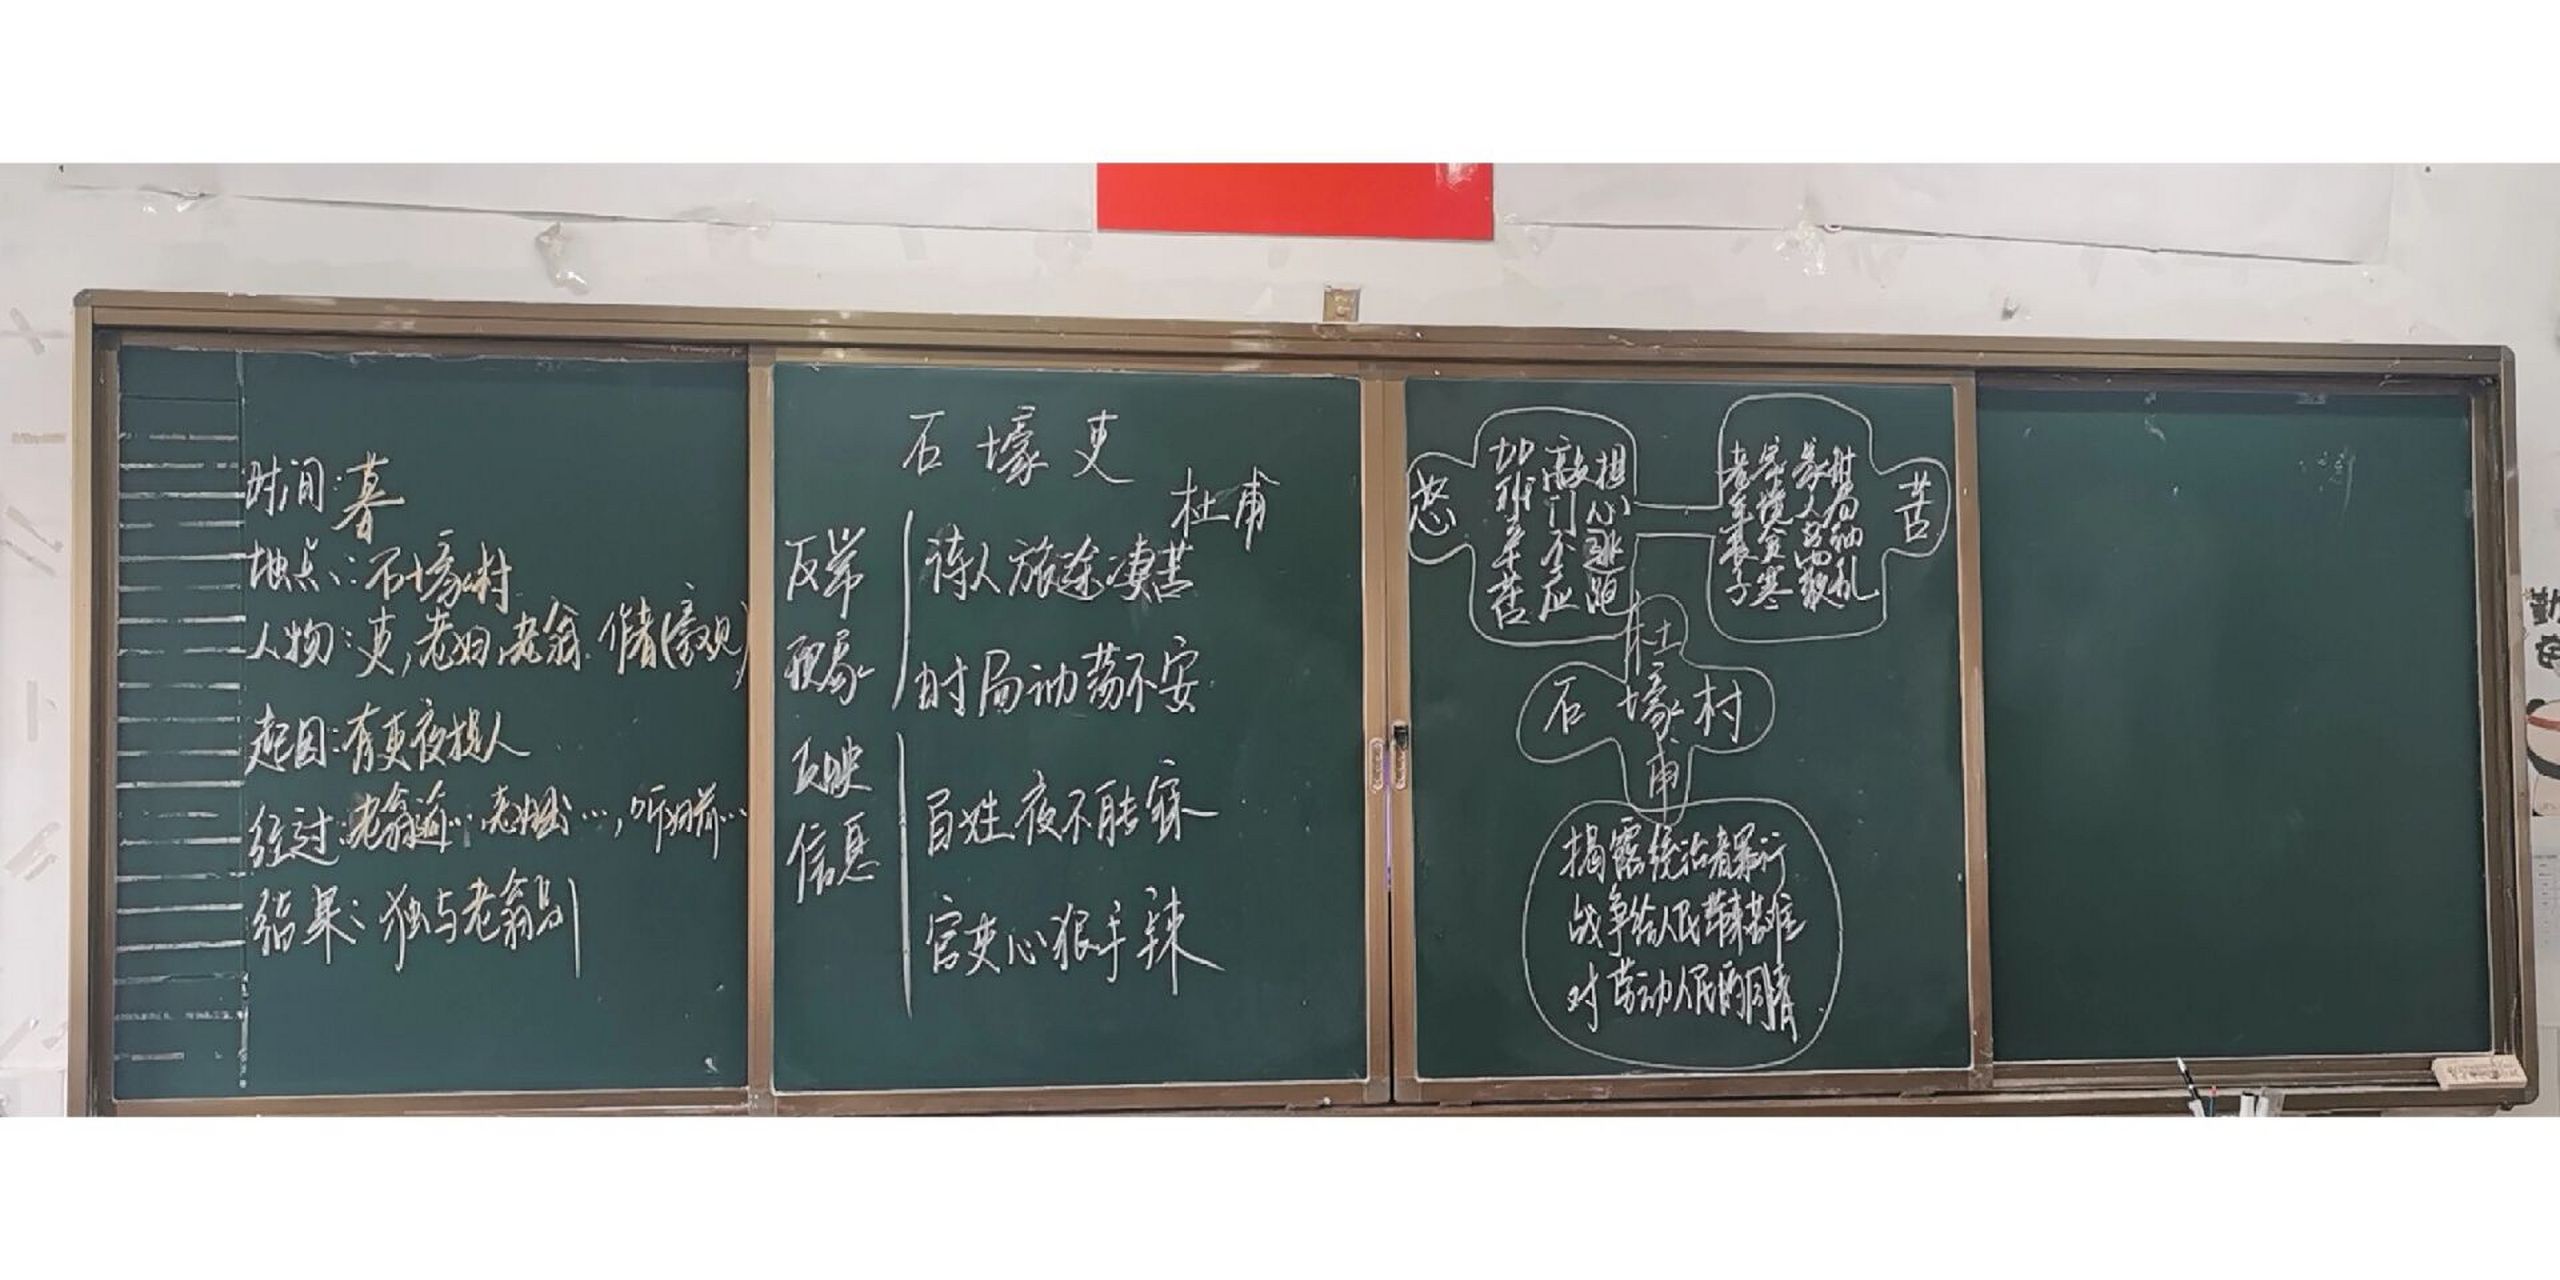 时间:暮
地点:石壕村
人物:吏,老妇,老翁.作者(旁观)
起因:有吏夜捉人
经过:老翁逾…老妇出…,听妇前…
结果:独与老翁别
石壕吏
杜甫
反常
现象
诗人旅途凄苦
时局动荡不安
反映
信息
百姓夜不能寐
官吏心狠手辣
怒
加班辛苦
敲门不应
担心逃跑
老年丧子
家境贫寒
家人离散
时局动乱
苦
杜
石壕村
甫
揭露统治者暴行
战争给人民带来苦难
对劳动人民的同情
勤